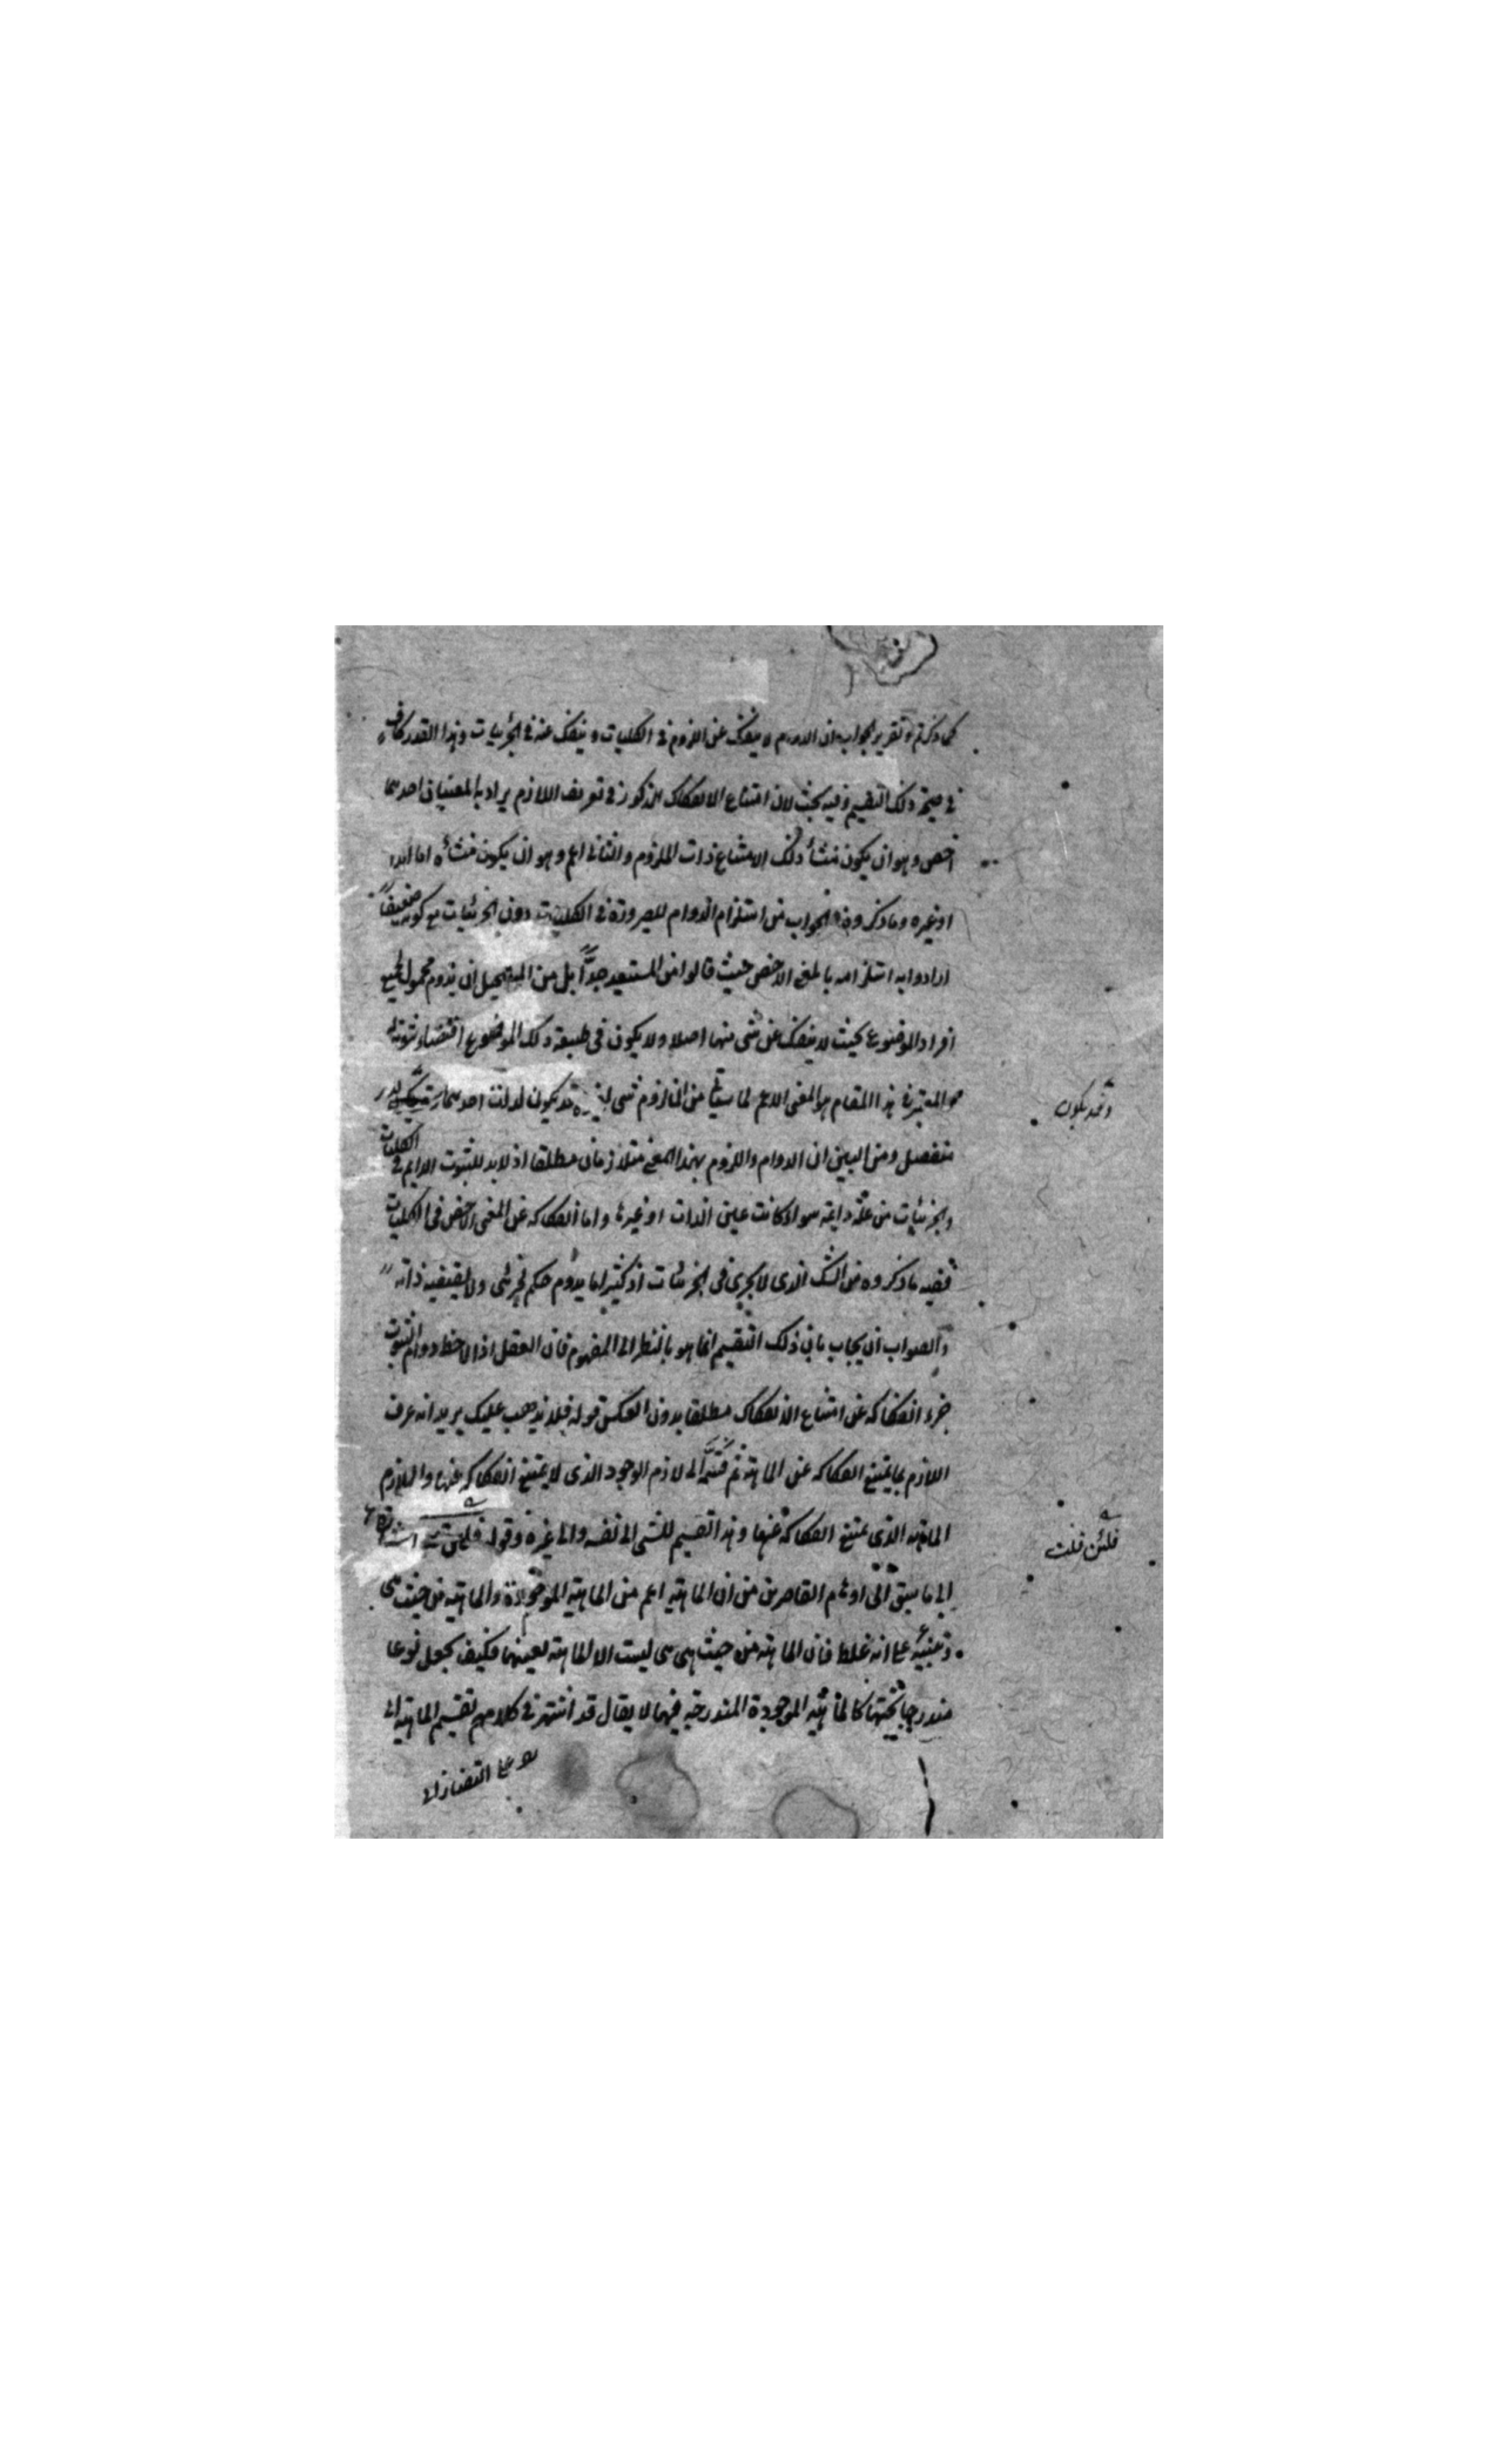 كما ذكرتم وتقرير الجواب ان الدوام لا ينفك عن اللزوم فى الكليات وينفك عنه فى الجزئيات وهذا القدر كاف
فى صحة ذلك التقسيم وفيه بحث لان امتناع الانفكاك المذكور فى تعريف اللازم يراد به المعنيان احدهما
اخص وهو ان يكون منشأ ذلك الامتناع ذات الملزوم والثانى اعم وهو ان يكون منشأه اما الذات
او غيره وما ذكروه فى الجواب من استلزام الدوام للضرورة فى الكليات دون الجزئيات مع كونه ضعيفا
ارادوا به استلزامه بالمعنى الاخص حيث قالوا من المستبعد جدّاً بل من المستحيل ان يدوم محمول لجميع
افراد الموضوع بحيث لا ينفك عن شىء منها اصلا ولا يكون فى طبيعة ذلك الموضوع اقتضاء ثبوته له
والمعتبر فى هذا المقام هو المعنى الاعم لما سيأتى من ان لزوم شىء لغيره قد يكون لذات احدهما
وقد يكون
منفصل ومن البين ان الدوام واللزوم بهذا المعنى متلازمان مطلقا اذ لا بد للثبوت الدايم فى الكليات
والجزئيات من علة دايمة سواء كانت عين الذات او غيرها واما انفكاكه عن المعنى الاخص فى الكليات
ففيه ما ذكروه من الشك الذى لا يجرى فى الجزئيات اذ كثيرا ما يدوم حكم لجزئى ولا يقتضيه ذاته
والصواب ان يجاب بان ذلك التقسيم انما هو بالنظر الى المفهوم فان العقل اذا لاحظ دوام الثبوت
جوز انفكاكه عن امتناع الانفكاك مطلقا بدون العكس قوله فلا يذهب عليك يريد انه عرف
اللازم بما يمتنع انفكاكه عن الماهية ثم قسّمه الى لازم الوجود الذى لا يمتنع انفكاكه عنها ولازم
الماهية الذى يمتنع انفكاكه عنها وهذا تقسيم للشىء الى نفسه والى غيره وقوله اشارة
فلئن قلت
الى ما سبق الى اوهام القاصرين من ان الماهية اعم من الماهية الموجودة والماهية من حيث هى
وتنبيه على انه غلط فان الماهية من حيث هى هى ليست الا الماهية بعينها فكيف يجعل نوعا
مندرجا تحتها كالماهية الموجودة المندرجة فيها لا يقال قد اشتهر فى كلامهم تقسيم الماهية الى